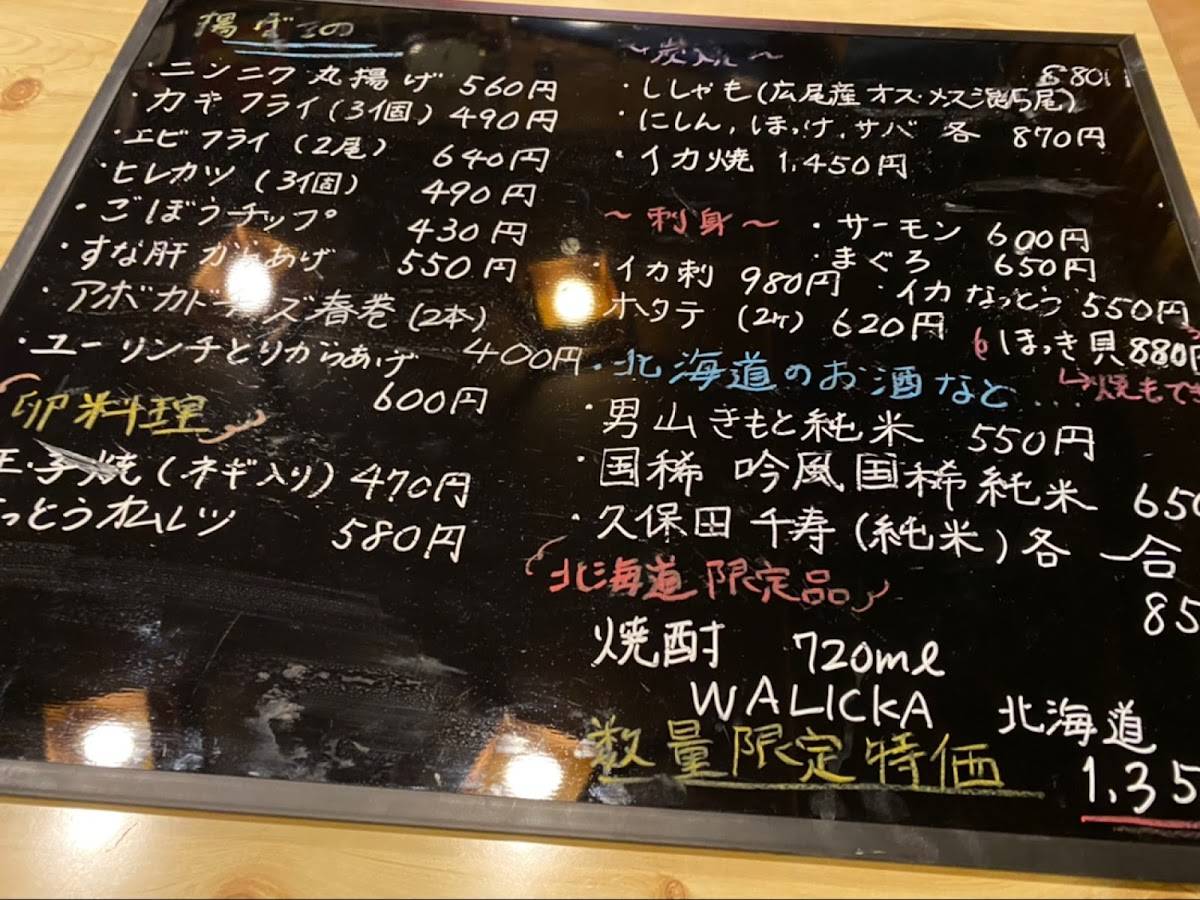 揚げもの
・ニンニク丸揚げ 560円
・カキフライ(3個) 490円
・エビフライ(2尾) 640円
・ヒレカツ(3個) 490円
・ごぼうチップ 430円
・すな肝からあげ 550円
・アボカドチーズ春巻(2本)
400円
・ユーリンチとりからあげ
600円
卵料理
玉子焼(ネギ入り) 470円
なっとうオムレツ 580円
880円
・ししゃも(広尾産オス・メス混5尾)
・にしん,ほっけ,サバ 各 870円
・イカ焼 1,450円
～刺身～
・サーモン 600円
・まぐろ 650円
・イカ刺 980円
・イカなっとう 550円
ホタテ (2ケ) 620円
ほっき貝 880円
↳焼もでき
・北海道のお酒など....
・男山きもと純米 550円
・国稀 吟風国稀純米 650
・久保田千寿(純米)各 一合
85
北海道限定品
焼酎 720ml
WALICKA 北海道
数量限定特価 1,35